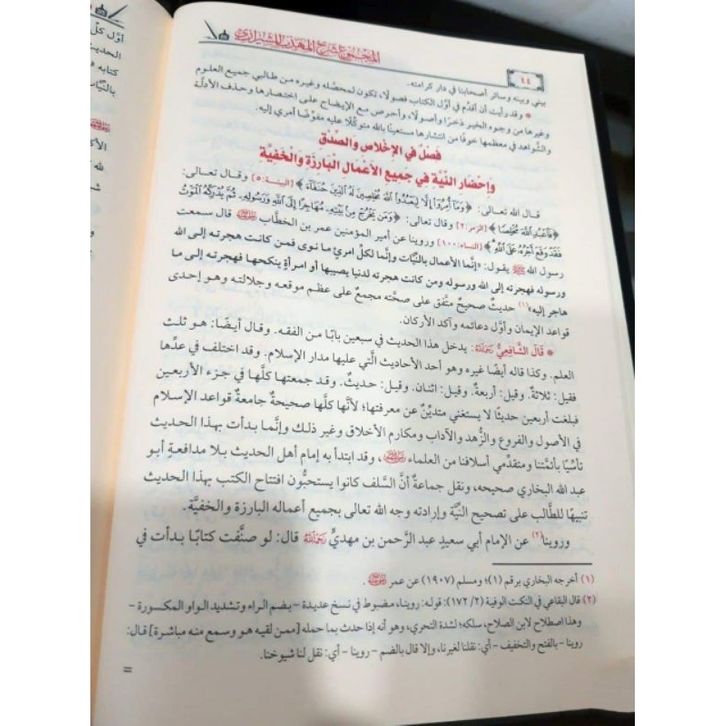 المجموع شرح المهذب للشيرازي
٤٤
بيني وبينه وسائر أصحابنا في دار كرامته.
* وقد رأيت أن أقدّم في أوّل الكتاب فصولًا، تكون لمحصّله وغيره من طالبي جميع العلوم
وغيرها من وجوه الخير ذخرًا وأصولًا، وأحرص مع الإيضاح على اختصارها وحذف الأدلّة
والشّواهد في معظمها خوفًا من انتشارها مستعينًا بالله متوكّلًا عليه مفوّضًا أمري إليه.
فَصْلٌ في الإِخْلاصِ والصِّدْقِ
وَإِحْضَارِ النِّيَّةِ في جَمِيعِ الأَعْمَالِ البَارِزَةِ وَالْخَفِيَّةِ
قال الله تعالى: ﴿وَمَآ أُمِرُوٓاْ إِلَّا لِيَعْبُدُواْ ٱللَّهَ مُخْلِصِينَ لَهُ ٱلدِّينَ حُنَفَآءَ﴾ [البينة:٥] وقال تعالى:
﴿فَٱعْبُدِ ٱللَّهَ مُخْلِصًا﴾ [الزمر:٢] وقال تعالى: ﴿وَمَن يَخْرُجْ مِنۢ بَيْتِهِۦ مُهَاجِرًا إِلَى ٱللَّهِ وَرَسُولِهِۦ ثُمَّ يُدْرِكْهُ ٱلْمَوْتُ
فَقَدْ وَقَعَ أَجْرُهُۥ عَلَى ٱللَّهِ﴾ [النساء:١٠٠] وروينا عن أمير المؤمنين عمر بن الخطَّاب رضي الله عنه قال سمعت
رسول الله ﷺ يقول: «إنَّما الأعمال بالنِّيَّات وإنَّما لكلِّ امرئٍ ما نوى فمن كانت هجرته إلى الله
ورسوله فهجرته إلى الله ورسوله ومن كانت هجرته لدنيا يصيبها أو امرأةٍ ينكحها فهجرته إلى ما
هاجر إليه»(١) حديثٌ صحيحٌ متَّفق على صحَّته مجمعٌ على عظم موقعه وجلالته وهو إحدى
قواعد الإيمان وأوَّل دعائمه وآكد الأركان.
* قَالَ الشَّافِعِيُّ رَحِمَهُ اللهُ: يدخل هذا الحديث في سبعين بابًا من الفقه. وقال أيضًا: هو ثلث
العلم. وكذا قاله أيضًا غيره وهو أحد الأحاديث الَّتي عليها مدار الإسلام. وقد اختلف في عدِّها
فقيل: ثلاثةٌ. وقيل: أربعةٌ. وقيل: اثنان. وقيل: حديثٌ. وقد جمعتها كلَّها في جزء الأربعين
فبلغت أربعين حديثًا لا يستغني متديِّنٌ عن معرفتها؛ لأنَّها كلَّها صحيحةٌ جامعةٌ قواعد الإسلام
في الأصول والفروع والزُّهد والآداب ومكارم الأخلاق وغير ذلك وإنَّما بدأت بهذا الحديث
تأسِّيًا بأئمَّتنا ومتقدِّمي أسلافنا من العلماء رضي الله عنهم، وقد ابتدأ به إمام أهل الحديث بلا مدافعةٍ أبو
عبد الله البخاري صحيحه، ونقل جماعةٌ أنَّ السَّلف كانوا يستحبُّون افتتاح الكتب بهذا الحديث
تنبيهًا للطَّالب على تصحيح النِّيَّة وإرادته وجه الله تعالى بجميع أعماله البارزة والخفيَّة.
وروينا(٢) عن الإمام أبي سعيدٍ عبد الرَّحمن بن مهديٍّ رَحِمَهُ اللهُ قال: لو صنَّفت كتابًا بدأت في
(١) أخرجه البخاري برقم (١)؛ ومسلم (١٩٠٧) عن عمر رضي الله عنه.
(٢) قال البقاعي في النكت الوفية (٢/ ١٧٢): قوله: روينا، مضبوط في نسخ عديدة – بضم الراء وتشديد الواو المكسورة –
وهذا اصطلاح لابن الصلاح، سلكه؛ لشدة التحري، وهو أنه إذا حدث بما حمله [ممن لقيه هو وسمع منه مباشرة] قال:
روينا – بالفتح والتخفيف – أي: نقلنا لغيرنا، وإلا قال بالضم – روينا – أي: نقل لنا شيوخنا.
=
أوّل كلّ
الحديث
كتابه
بالنّيّات